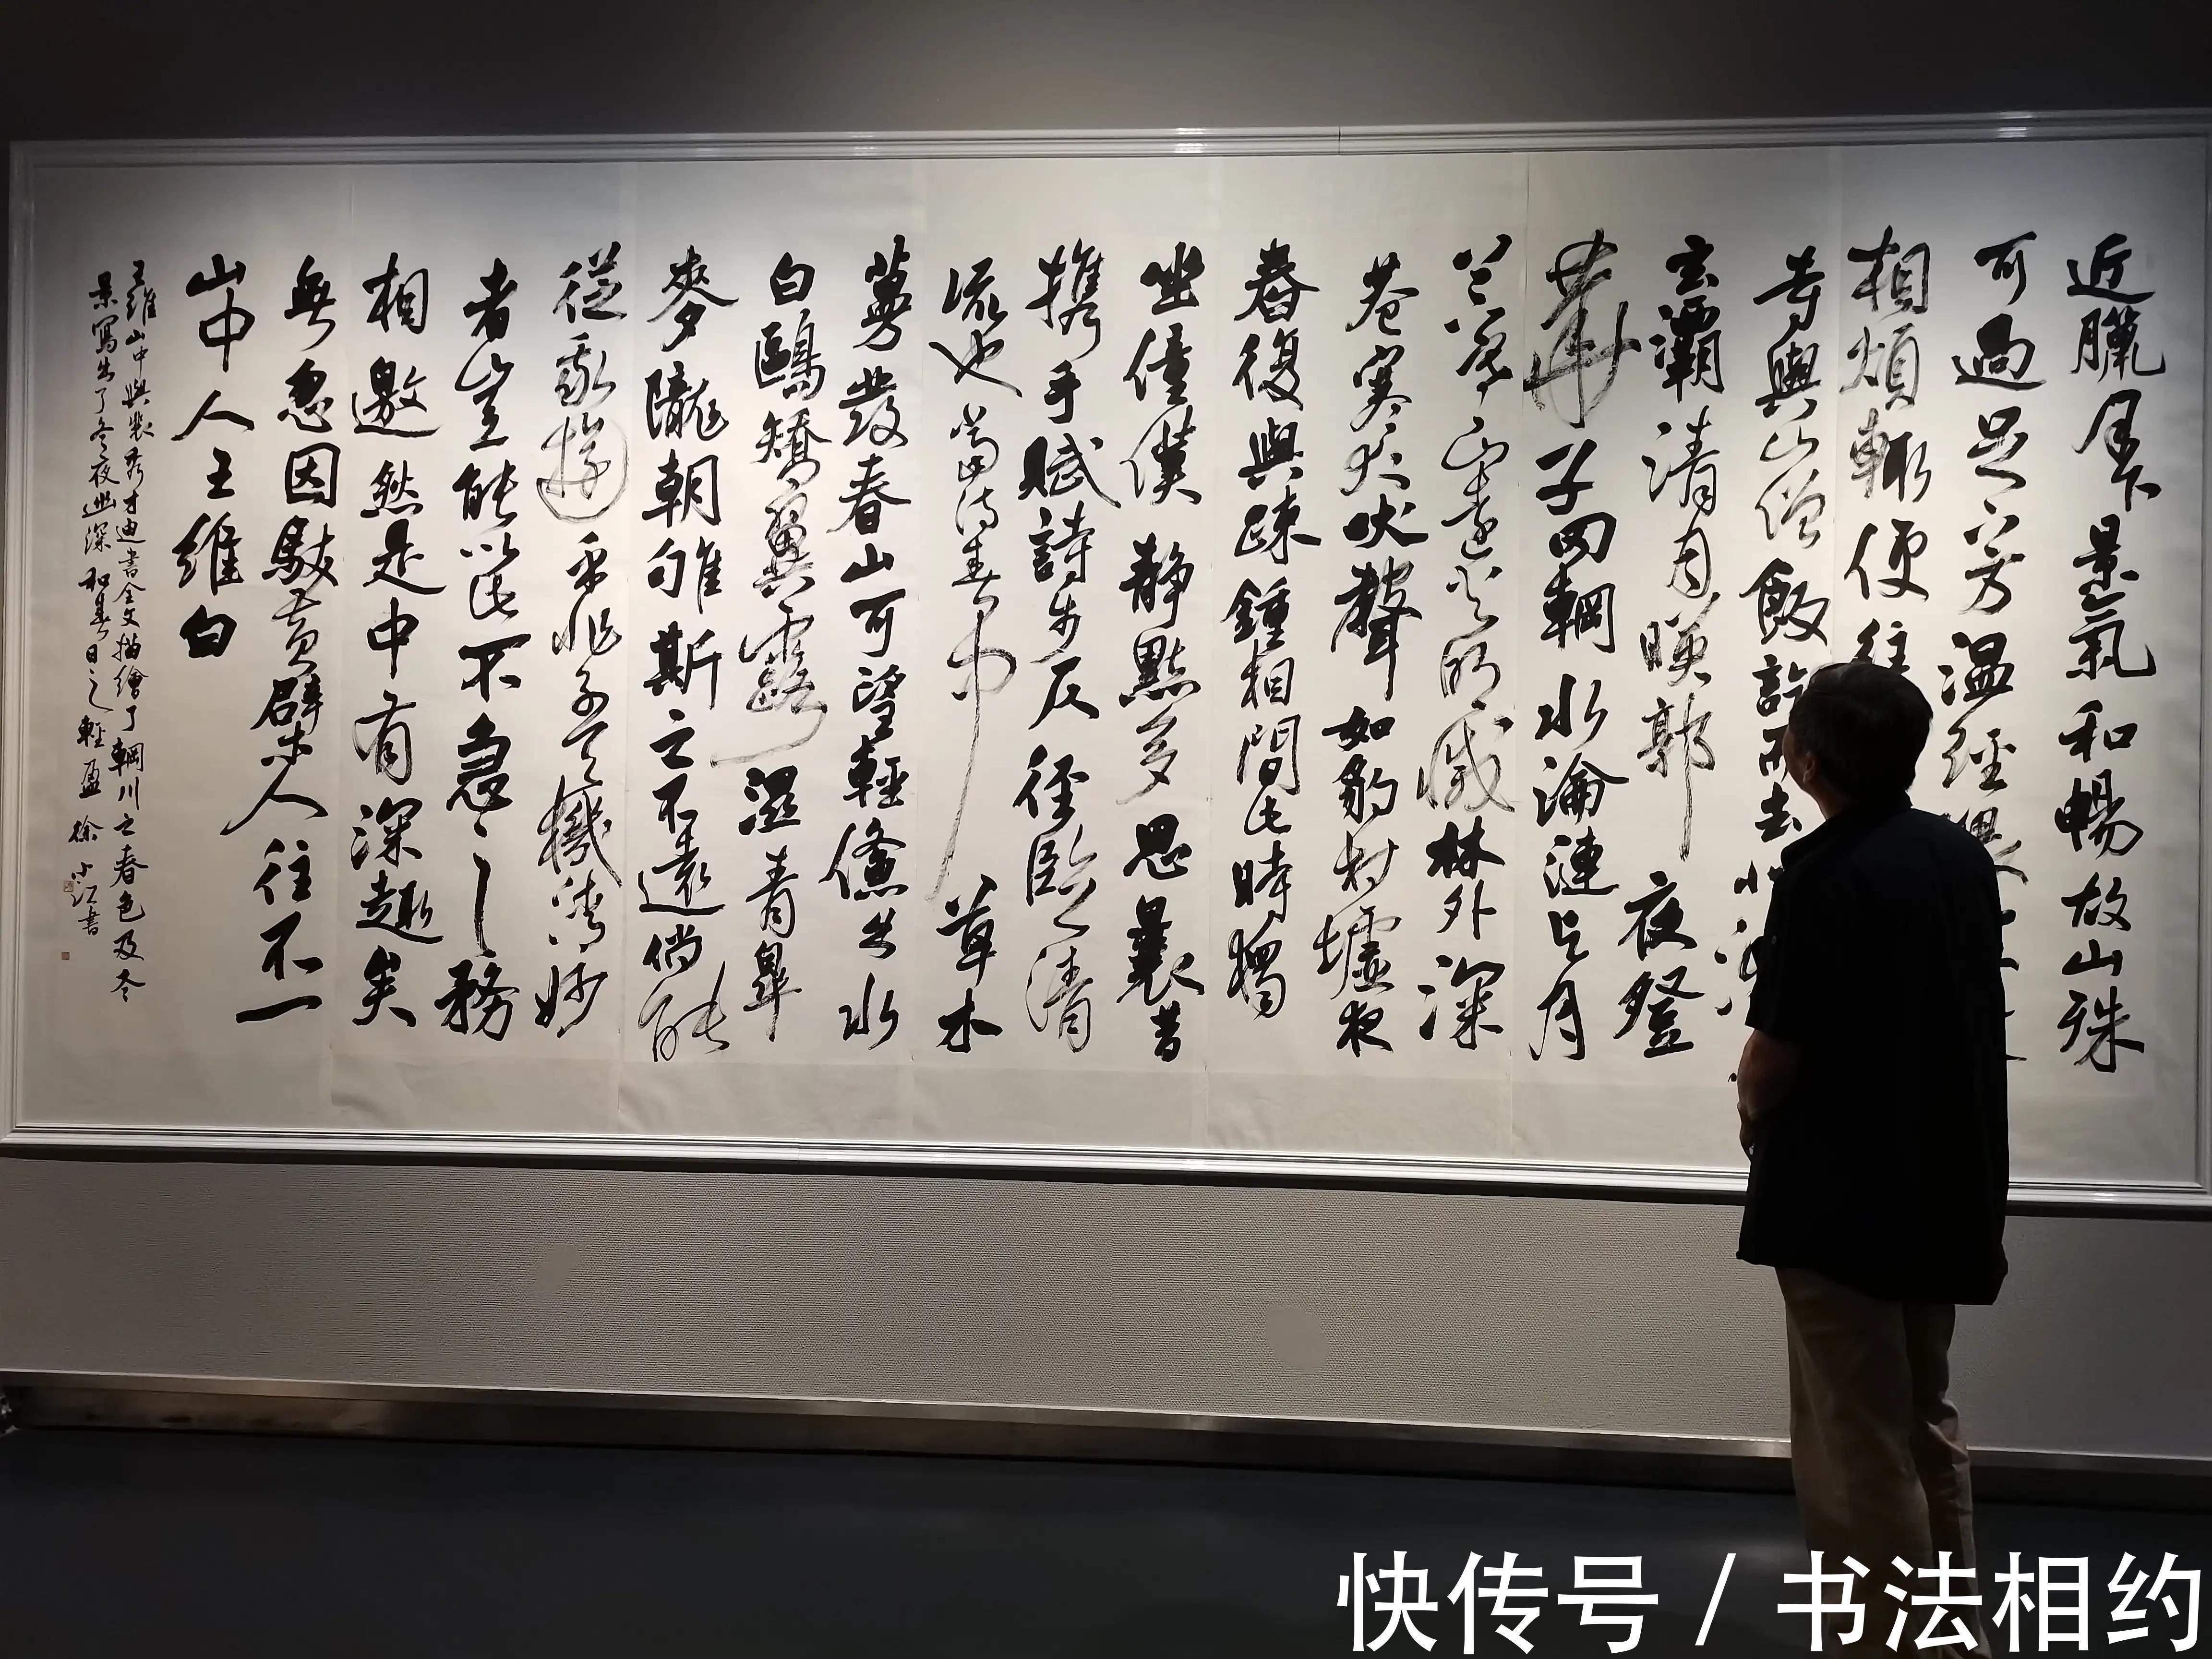 近臘月下景氣和暢故山殊
可過足下方温經
相煩輒便往
寺與山僧飯訖而去北涉
玄灞清月暎郭夜登
華子岡輞水淪漣與月
上下寒山遠火明滅林外深
巷寒犬吠聲如豹村墟夜
舂復與疎鍾相間此時獨
坐僮僕静默多思曩昔
携手賦詩步仄徑臨清
流也當待春中草木
蔓發春山可望輕鯈出水
白鷗矯翼露濕青皋
麥隴朝雊斯之不遠倘能
從我遊乎非子天機清妙
者豈能以此不急之務
相邀然是中有深趣矣
無忽因馱黃檗人往不一
山中人王維白
王維山中與裴秀才迪書全文描繪了輞川之春色及冬
景寫出了冬夜幽深和春日之輕盈 徐小江書
快传号 / 书法相约